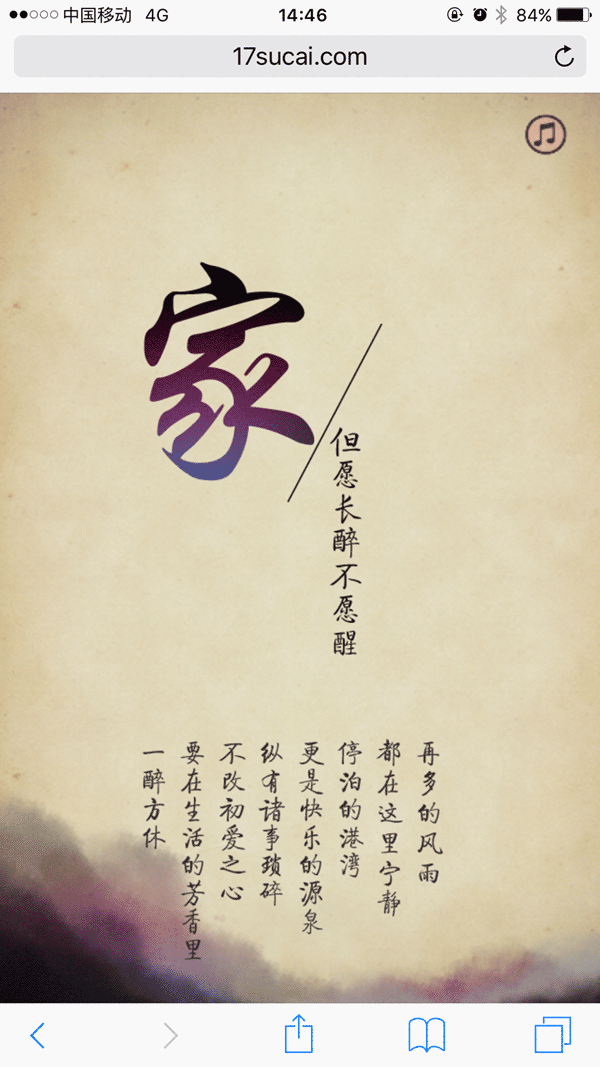 中国移动 4G 14:46 84%
17sucai.com
家
但愿长醉不愿醒
再多的风雨
都在这里宁静
停泊的港湾
更是快乐的源泉
纵有诸事琐碎
不改初爱之心
要在生活的芳香里
一醉方休